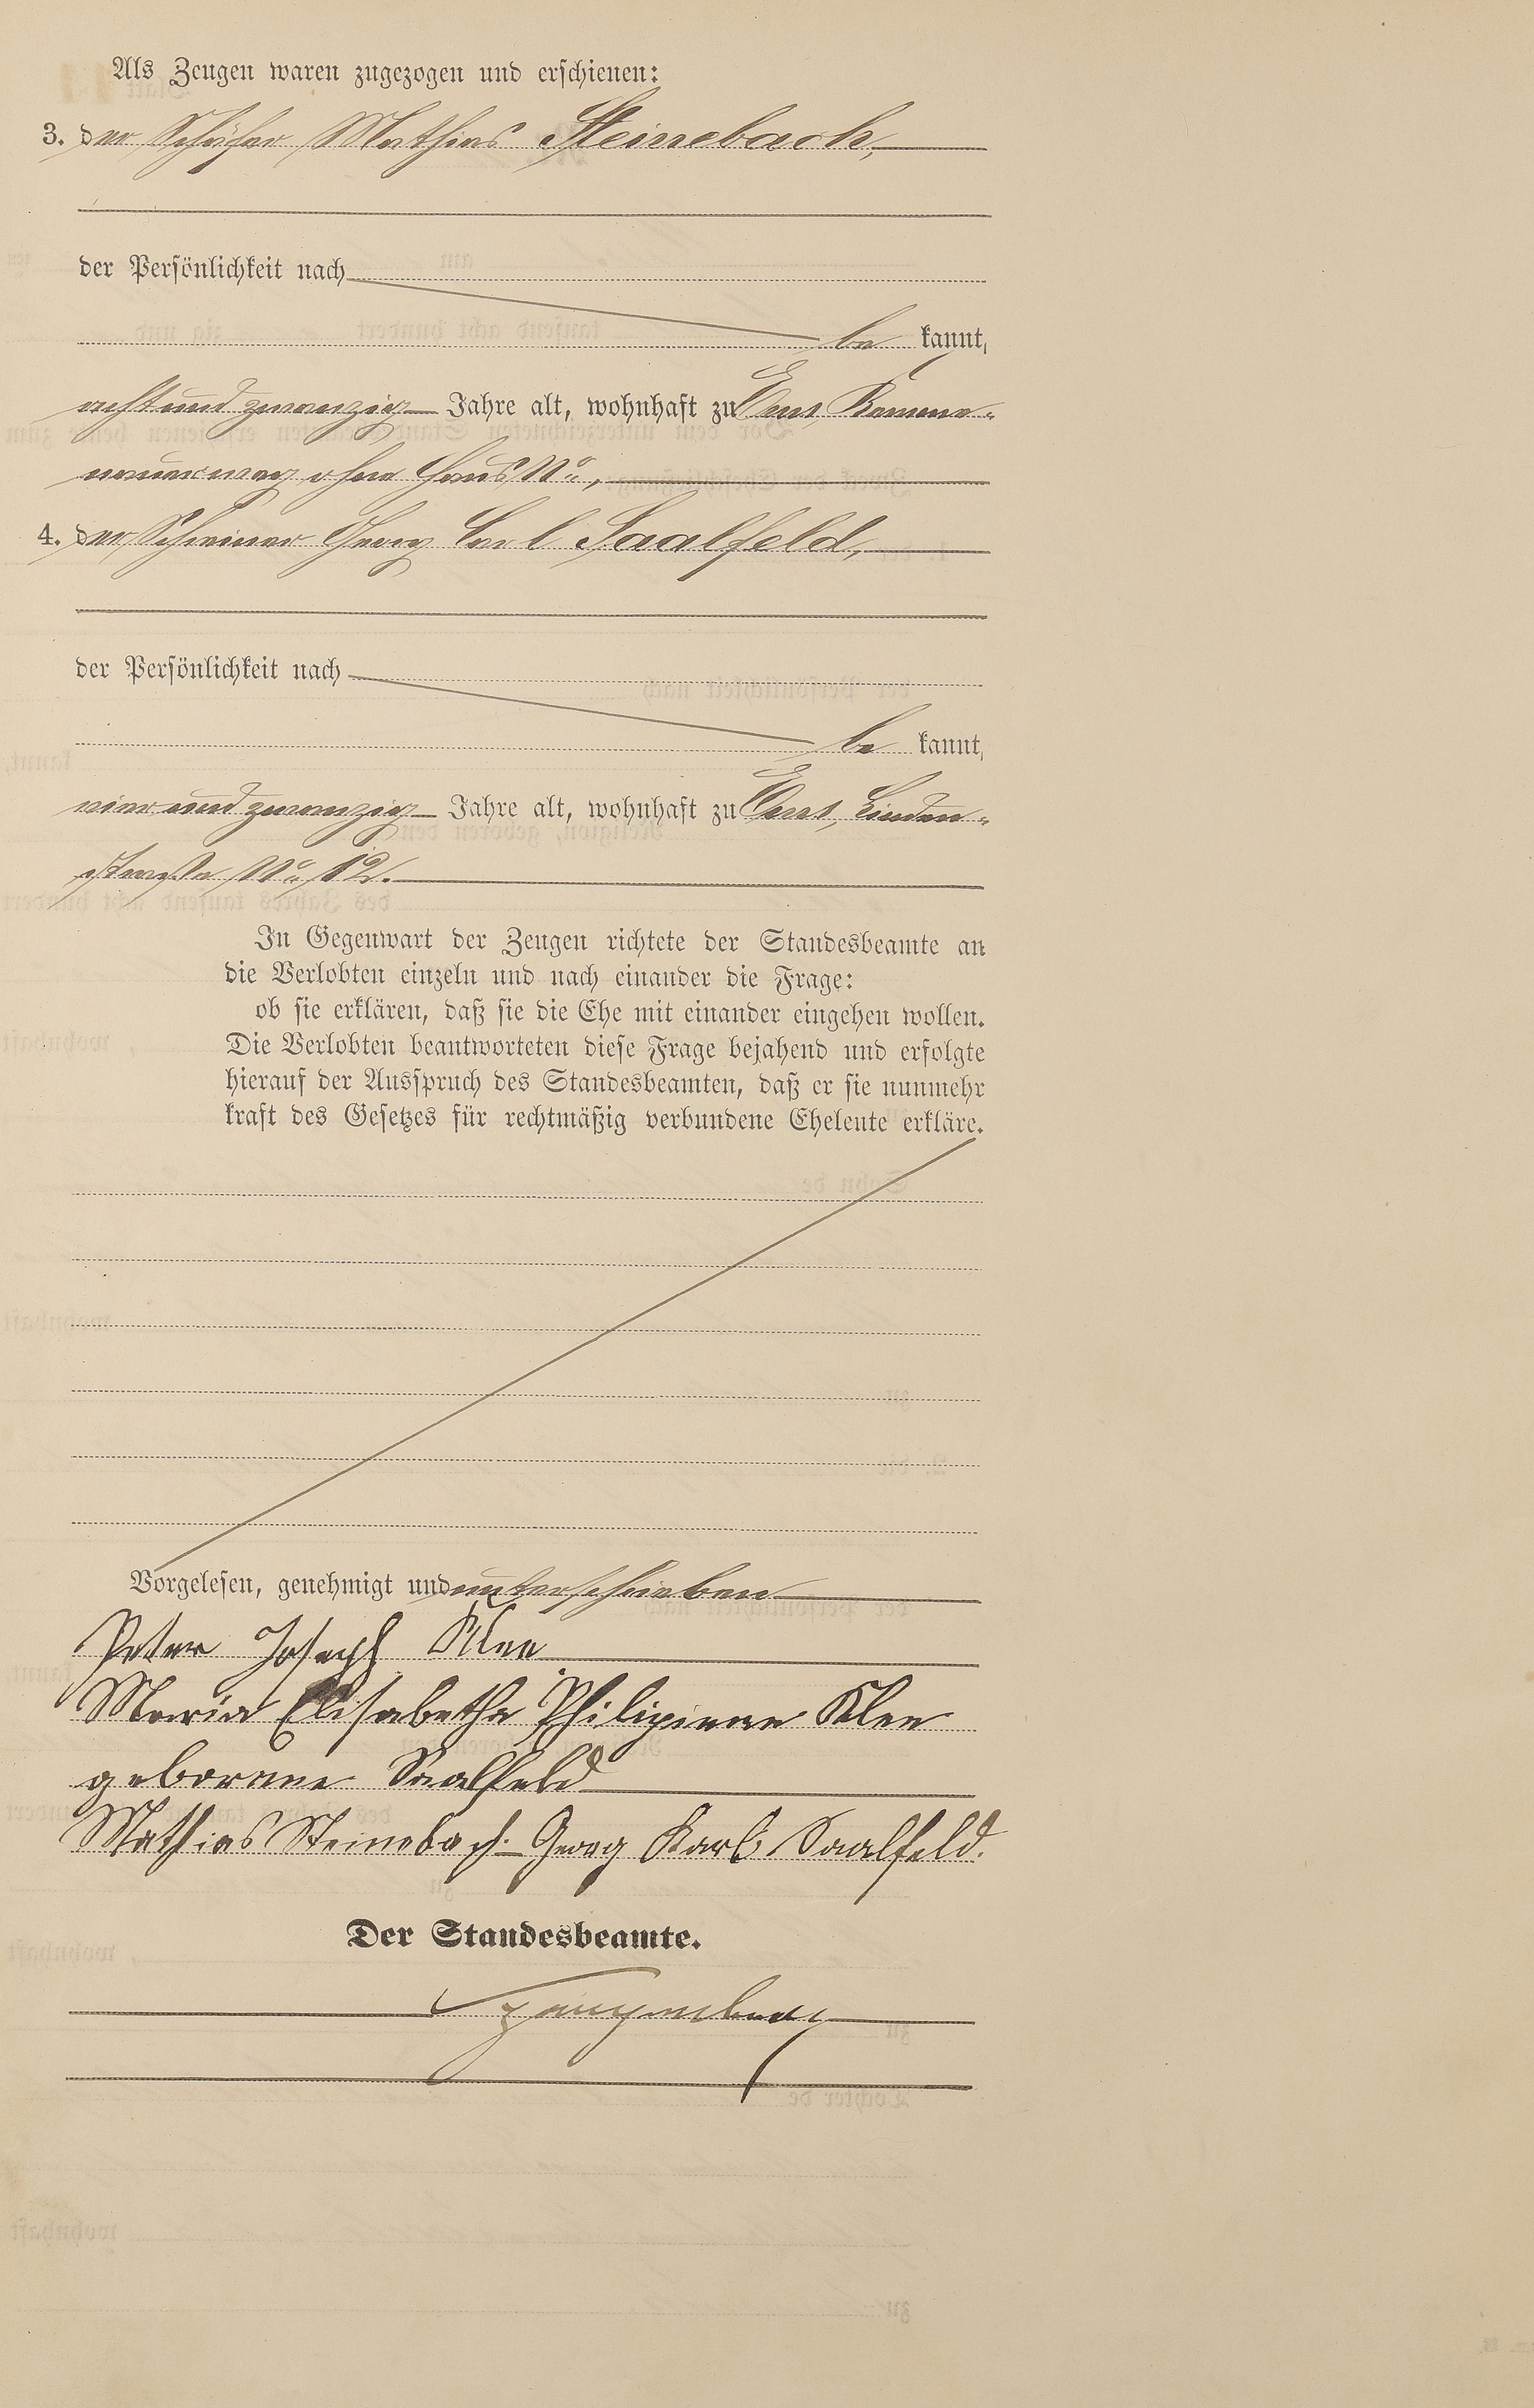 Als Zeugen waren zugezogen und erschienen:
3. der Schäfer Mathias Steinebach,
der Persönlichkeit nach
be kannt,
acht und zwanzig Jahre alt, wohnhaft zu Ems,
ohne Haus No,
4. der Schreiner Georg Carl Saalfeld,
der Persönlichkeit nach
be kannt,
vier und zwanzig Jahre alt, wohnhaft zu Ems, Linden-
straße No 12.
In Gegenwart der Zeugen richtete der Standesbeamte an
die Verlobten einzeln und nach einander die Frage:
ob sie erklären, daß sie die Ehe mit einander eingehen wollen.
Die Verlobten beantworteten diese Frage bejahend und erfolgte
hierauf der Ausspruch des Standesbeamten, daß er sie nunmehr
kraft des Gesetzes für rechtmäßig verbundene Eheleute erkläre.
Vorgelesen, genehmigt und unterschrieben
Peter Joseph Klee
Maria Elisabethe Philipinne Klee
geborene Saalfeld
Mathias Steinebach. Georg Karl Saalfeld.
Der Standesbeamte.